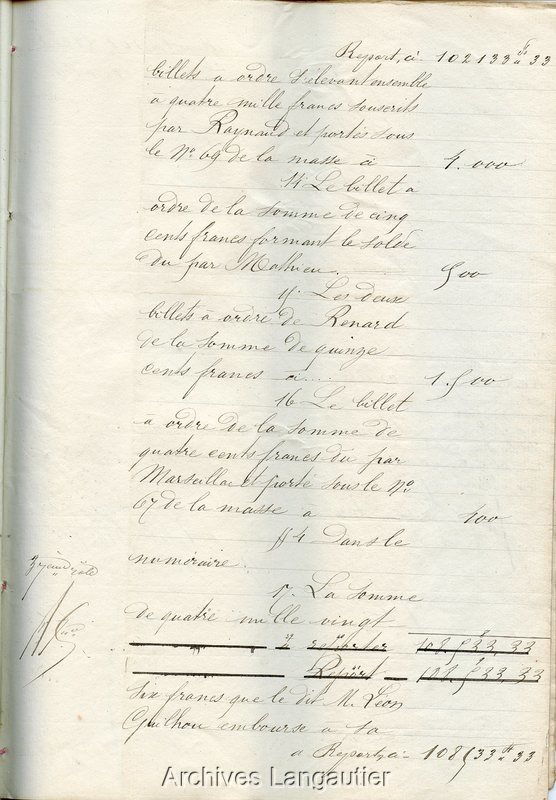 Report, ci 102133 fs 33
billets a ordre s'élevant ensemble
a quatre mille francs souscrits
par Raynaud et portés sous
le No 69 de la masse ci 4.000
14 Le billet a
ordre de la somme de cinq
cents francs formant le solde
du par Mathieu 500
15. Les deux
billets a ordre de Renard
de la somme de quinze
cents francs ci... 1.500
16 Le billet
a ordre de la somme de
quatre cents francs du par
Marseillac et porté sous le No
67 de la masse a 400
§ 4 Dans le
numéraire.
17. La somme
de quatre mille vingt
a reporter 108.533,33
Report 108.533,33
six francs que le dit M. Léon
Guilhou embourse a sa
a Report, ci 108533 fs 33
Archives Langautier